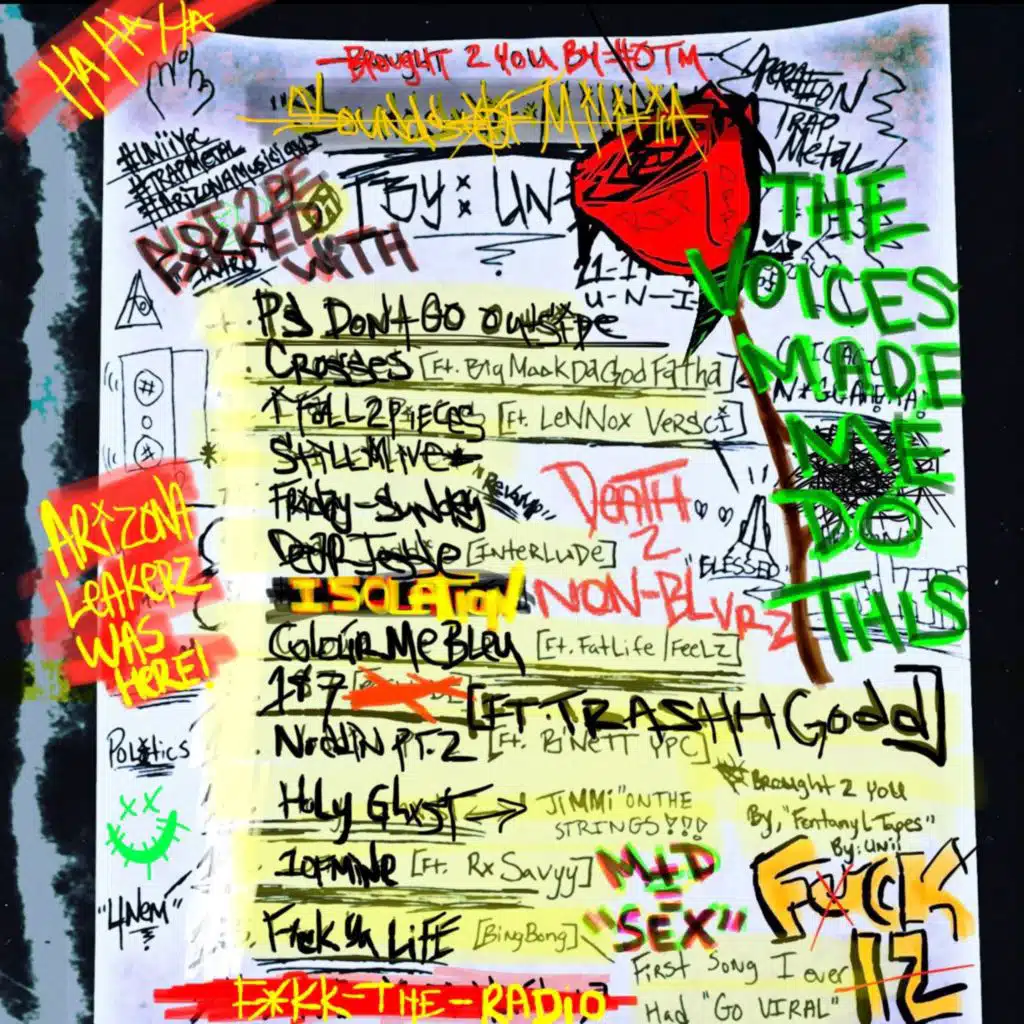 HA HA HA
BROUGHT 2 YOU BY #OTM
"SoundsOF MiHiA
OPERATION
TRAP
Metal
#UNiiYpc
#TRAPMETAL
#ARiZONAMusic
NOT 2 BE
F*CKED
WITH
INTRO
BY: UN-
U-N-I-
THE
VOICES
MADE
ME
DO
THIS
P's DON't GO OUtSiDE
CROSSES [Ft. Big MaakDaGodFatha]
I FALL 2 PiECES [Ft. LeNNox VeRSCi]
StiLLALiVE
FRiDay-SuNday
DEAR Jessie [INteRLuDe]
DEATH
2
NON-BLVRZ
"BLESSED"
ISOLATION
COLOUR Me BLEU [Ft. FatLife/FeeLZ]
187 [FT. TRASHH Godd]
NoddiN PT. 2 [Ft. BiNeTT YPC]
HoLy GhxST → JiMMi "ON THE
STRINGS!!!
1OFMiNe [Ft. Rx Savyy]
F*ck Ya LiFE [BingBong]
ARiZONA
LEAKERZ
WAS
HERE!
POL*tics
"4NEM"
BROUGHT 2 YOU
By, "Fentanyl Tapes"
By: UNii
M+D
"SEX"
FUCK
12
FiRST SONg I eveR
Had "GO VIRAL"
F*KK-THE-RADiO